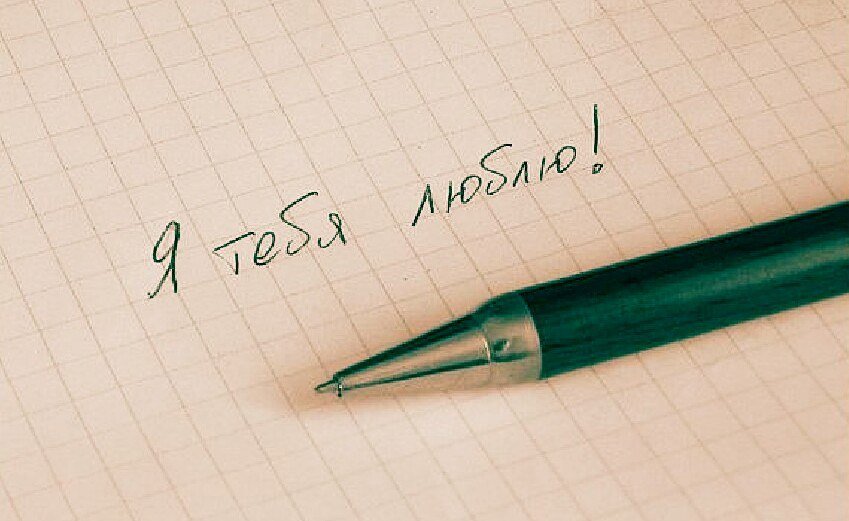 Я тебя люблю!